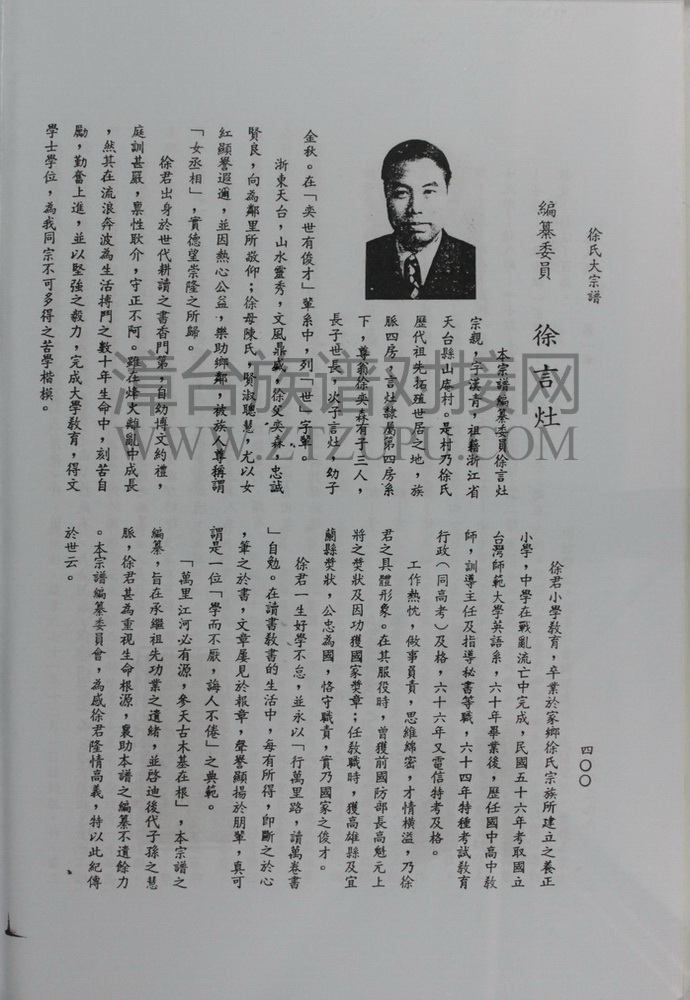 徐氏大宗譜
四〇〇
編纂委員 徐言灶
本宗譜編纂委員徐言灶
宗親，字漢青，祖籍浙江省
天台縣山庵村。是村乃徐氏
歷代祖先拓殖世居之地，族
脈四房；言灶隸屬第四房系
下，尊翁徐奕森有子三人，
長子世長，次子言灶，幼子
金秋。在「奕世有俊才」輩系中，列「世」字輩。
浙東天台，山水靈秀，文風鼎盛，徐父奕森，忠誠
賢良，向為鄰里所敬仰；徐母陳氏，賢淑聰慧，尤以女
紅顯譽遐邇，並因熱心公益，樂助鄉鄰，被族人尊稱謂
「女丞相」，實德望崇隆之所歸。
徐君出身於世代耕讀之書香門第，自幼博文約禮，
庭訓甚嚴，稟性耿介，守正不阿。雖在烽火離亂中成長
，然其在流浪奔波為生活搏鬥之數十年生命中，刻苦自
勵，勤奮上進，並以堅強之毅力，完成大學教育，得文
學士學位，為我同宗不可多得之苦學楷模。
徐君小學教育，卒業於家鄉徐氏宗族所建立之養正
小學，中學在戰亂流亡中完成，民國五十六年考取國立
台灣師範大學英語系，六十年畢業後，歷任國中高中教
師，訓導主任及指導秘書等職，六十四年特種考試教育
行政（同高考）及格，六十六年又電信特考及格。
工作熱忱，做事負責，思維綿密，才情橫溢，乃徐
君之具體形象。在其服役時，曾獲前國防部長高魁元上
將之獎狀及因功獲國家獎章；任教職時，獲高雄縣及宜
蘭縣獎狀，公忠為國，恪守職責，實乃國家之俊才。
徐君一生好學不怠，並永以「行萬里路，讀萬卷書
」自勉。在讀書教書的生活中，每有所得，即斷之於心
，筆之於書，文章屢見於報章，聲譽顯揚於朋輩，真可
謂是一位「學而不厭，誨人不倦」之典範。
「萬里江河必有源，參天古木基在根」，本宗譜之
編纂，旨在承繼祖先功業之遺緒，並啓迪後代子孫之慧
脈，徐君甚為重視生命根源，襄助本譜之編纂不遺餘力
。本宗譜編纂委員會，為感徐君隆情高義，特以此紀傳
於世云。
漳台族谱对接网
WWW.ZTZUPU.COM